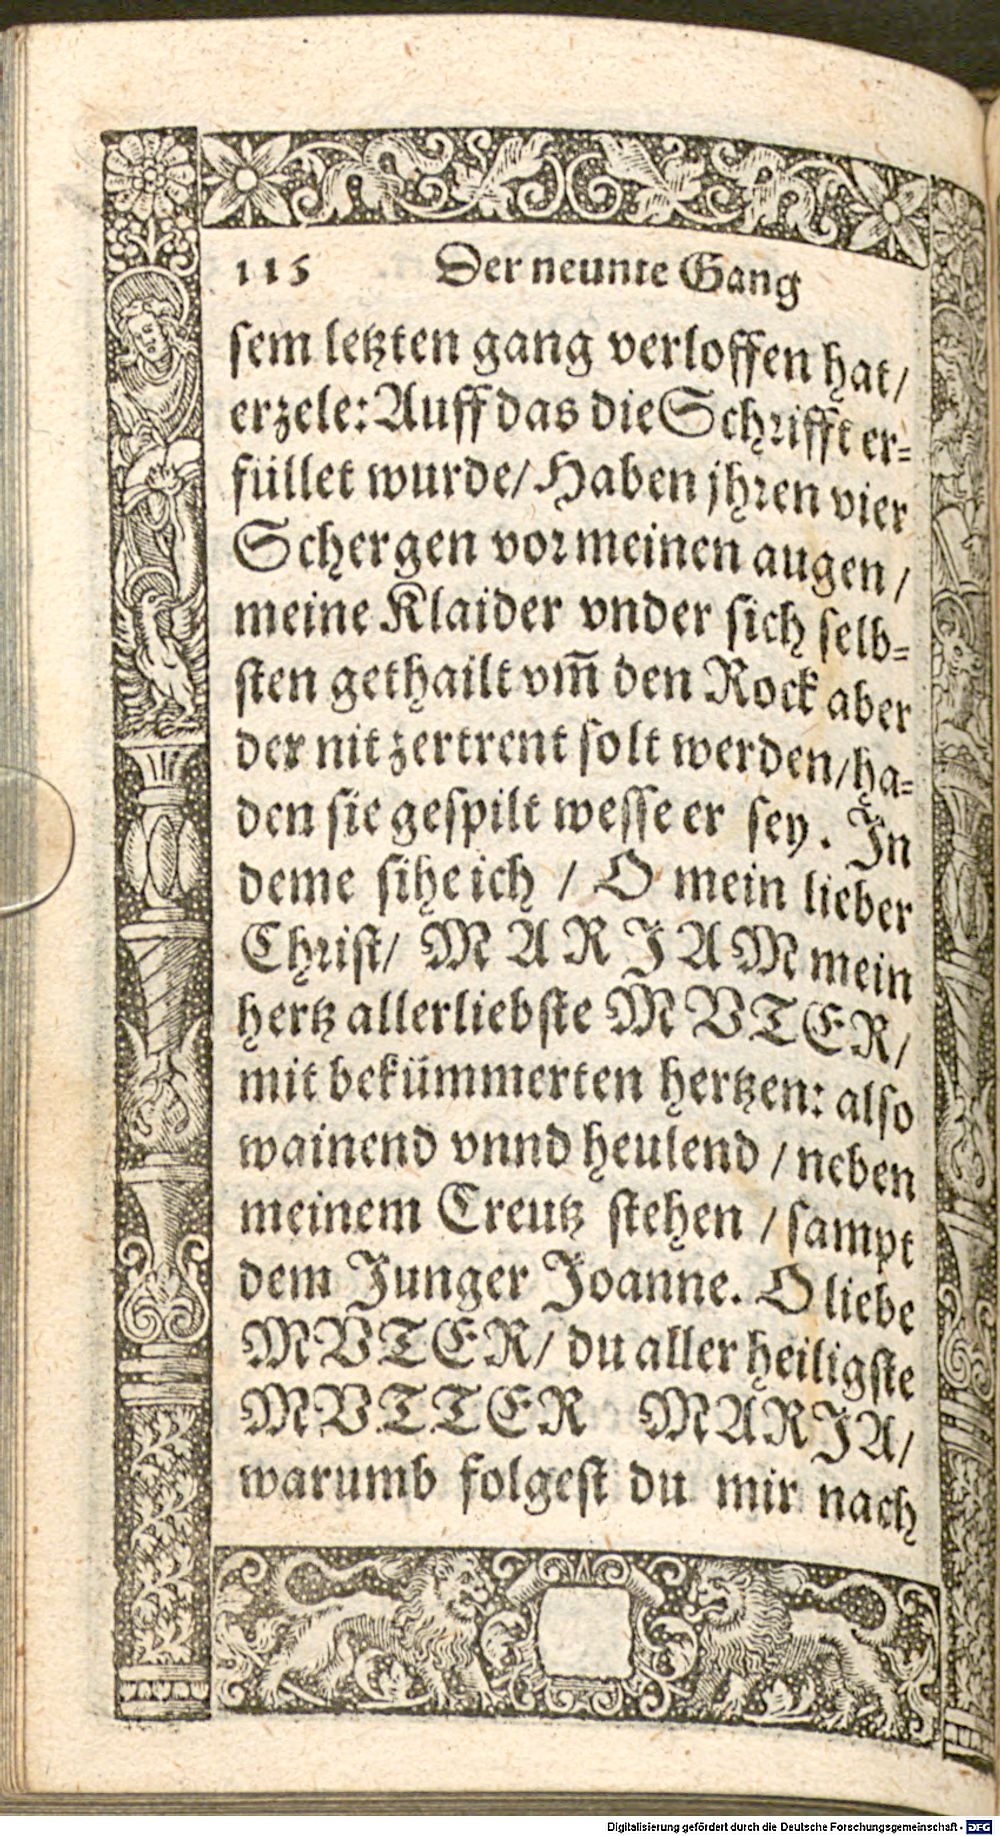 115 Der neunte Gang
sem letzten gang verloffen hat/
erzele: Auff das die Schrifft er⸗
füllet wurde/ Haben jhren vier
Schergen vor meinen augen /
meine Klaider vnder sich selb⸗
sten gethailt vm̃ den Rock aber
der nit zertrent solt werden/ ha⸗
den sie gespilt wesse er sey. In
deme sihe ich / O mein lieber
Christ/ MARIAM mein
hertz allerliebste MVTER/
mit bekümmerten hertzen: also
wainend vnnd heulend / neben
meinem Creutz stehen / sampt
dem Junger Joanne. O liebe
MVTER/ du aller heiligste
MVTTER MARIA/
warumb folgest du mir nach
Digitalisierung gefördert durch die Deutsche Forschungsgemeinschaft - DFG